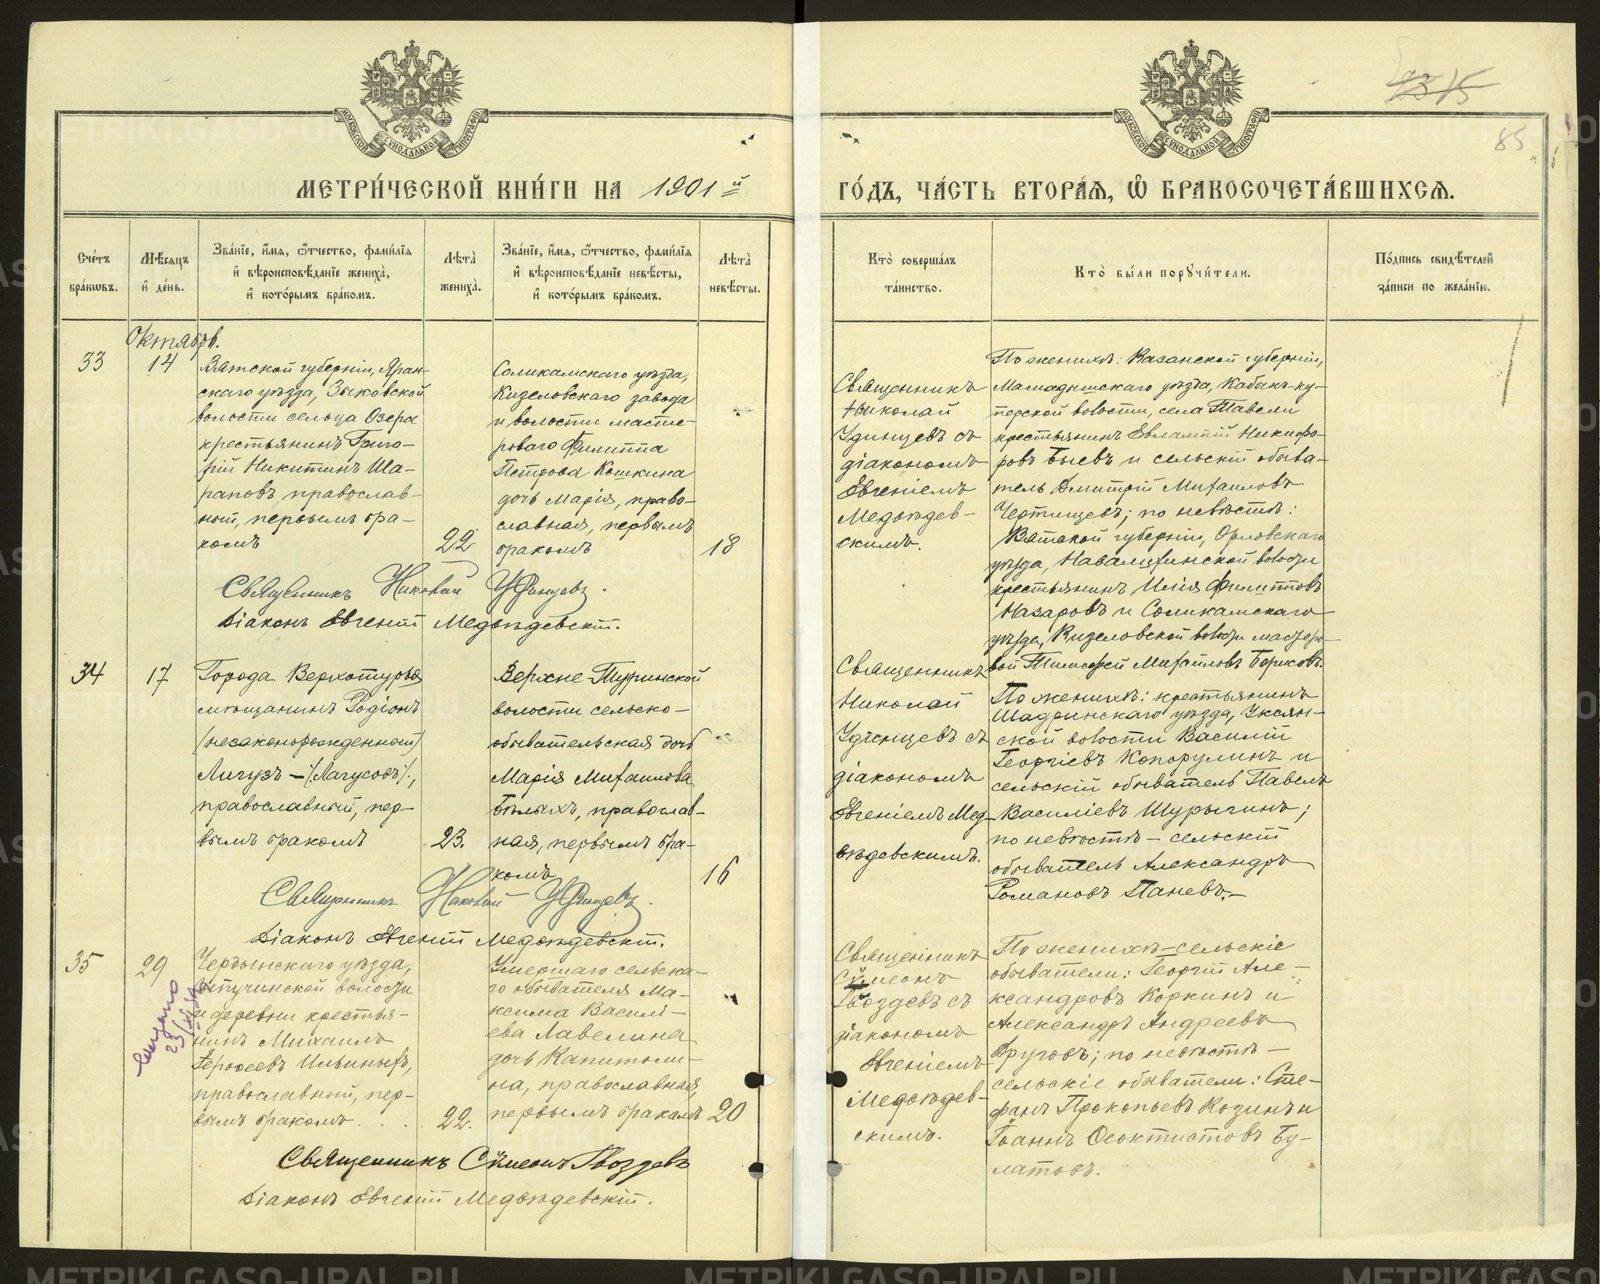 МОСКОВСКОЙ СѴНОДАЛЬНОЙ ТИПОГРАФІИ
МОСКОВСКОЙ СѴНОДАЛЬНОЙ ТИПОГРАФІИ
85
МЕТРИ́ЧЕСКОЙ КНИ́ГИ НА 1901 й
ГО́ДЪ, ЧА́СТЬ ВТОРА́Я, Ѡ БРАКОСОЧЕТА́ВШИХСЯ.
Сче́тъ бра́ковъ.
Мѣ́сяцъ и де́нь.
Зва́ніе, и́мя, ѻ́тчество, фами́лія и вѣроисповѣ́даніе жениха̀, и кото́рымъ бра́комъ.
Лѣта̀ жениха̀.
Зва́ніе, и́мя, ѻ́тчество, фами́лія и вѣроисповѣ́даніе невѣ́сты, и кото́рымъ бра́комъ.
Лѣта̀ невѣ́сты.
Кто̀ соверша́лъ та́инство.
Кто̀ бы́ли поручи́тели.
По́дпись свидѣ́телей за́писи по жела́нію.
Октябрь.
33
14
Вятской губерніи, Яран-
скаго уѣзда, Зыковской
волости сельца Озера
крестьянинъ Григо-
рій Никитинъ Ша-
раповъ, православ-
ный, первымъ бра-
комъ
22
Соликамскаго уѣзда,
Кизеловскаго завода
и волости масте-
роваго Филиппа
Петрова Кошкина
дочь Марія, право-
славная, первымъ
бракомъ
18
Священникъ
Николай
Удинцевъ съ
діакономъ
Евгеніемъ
Медвѣдев-
скимъ.
По женихѣ: Казанской губерніи,
Мамадышскаго уѣзда, Кабыкъ-ку-
перской волости, села Тавели
крестьянинъ Евлампій Никифо-
ровъ Быевъ и сельскій обыва-
тель Дмитрій Михаиловъ
Чертищевъ; по невѣстѣ:
Вятской губерніи, Орловскаго
уѣзда, волости
крестьянинъ Илія Филипповъ
Назаровъ и Соликамскаго
уѣзда, Кизеловской волости мастеро-
вой Тимофей Михаиловъ Борисовъ.
Священникъ Николай Удинцевъ.
Діаконъ Евгеній Медвѣдевскій.
34
17
Города Верхотурья
мѣщанинъ Родіонъ
(незаконорожденный)
Лагусовъ,
православный, пер-
вымъ бракомъ
23.
Верхне-Туринской
волости сельско-
обывательская дочь
Марія Михаилова
Бѣлыхъ, православ-
ная, первымъ бра-
комъ
16
Священникъ
Николай
Удинцевъ съ
діакономъ
Евгеніемъ Мед-
вѣдевскимъ.
По женихѣ: крестьянинъ
Шадринскаго уѣзда, Уксян-
ской волости Василій
Георгіевъ Копорулинъ и
сельскій обыватель Павелъ
Василіевъ Шурыгинъ;
по невѣстѣ – сельскій
обыватель Александръ
Романовъ Паневъ.–
Священникъ Николай Удинцевъ.
Діаконъ Евгеній Медвѣдевскій.
35
29
Чердынскаго уѣзда,
волости
и деревни крестья-
нинъ Михаилъ
Ильиныхъ,
православный, пер-
вымъ бракомъ . . .
22.
Умершаго сельска-
го обывателя Ма-
ксима Василі-
ева Лавелина
дочь Капитоли-
на, православная,
первымъ бракомъ
20
Священникъ
Сѵмеонъ
Гвоздевъ съ
діакономъ
Евгеніемъ
Медвѣдев-
скимъ.
По женихѣ – сельскіе
обыватели: Георгій Але-
ксандровъ Коркинъ и
Александръ Андреевъ
Друговъ; по невѣстѣ –
сельскіе обыватели: Сте-
фанъ Прокопьевъ Козинъ и
Іоаннъ Феоктистовъ Бу-
латовъ.
Священникъ Сѵмеонъ Гвоздевъ
Діаконъ Евгеній Медвѣдевскій.
METRIKI.GASO-URAL.RU